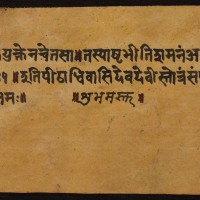 युक्तेनचेतसा॥तस्याघभीतिशमनंअ
१॥इतिपीठाधिवासिदेवदेवीस्तोत्रंसं
मः॥ ॥शुभमस्तु॥